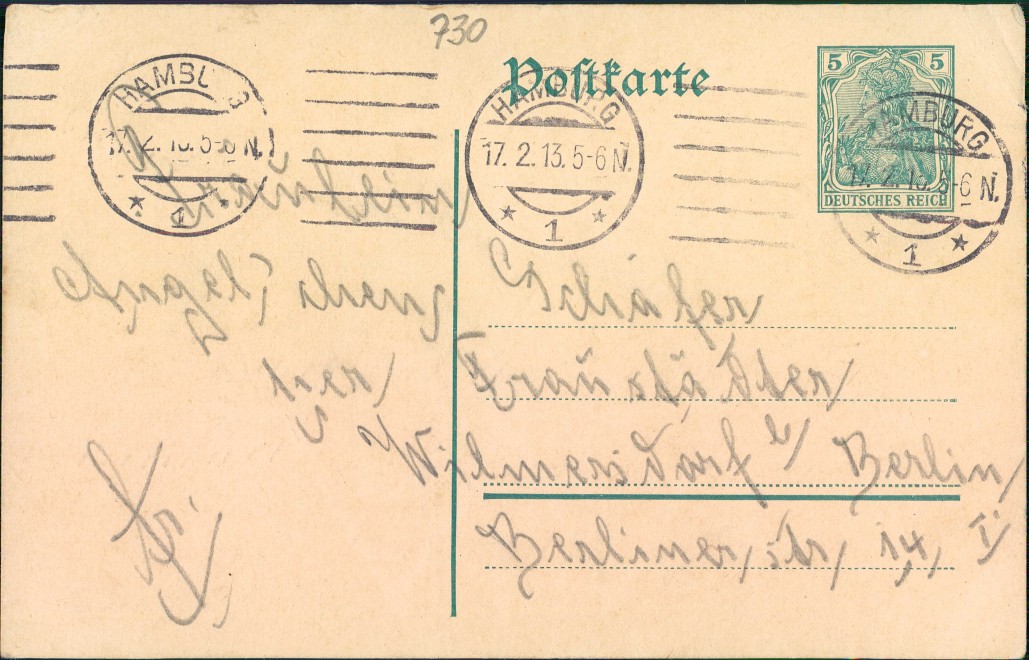 730
Postkarte
5 5
DEUTSCHES REICH
HAMBURG
17. 2. 13. 5-6 N.
* 1 *
HAMBURG
17. 2. 13. 5-6 N.
* 1 *
HAMBURG
17. 2. 13. 5-6 N.
* 1 *
Fräulein
Schäfer
Wilmersdorf b/ Berlin
Berliner str 14, I